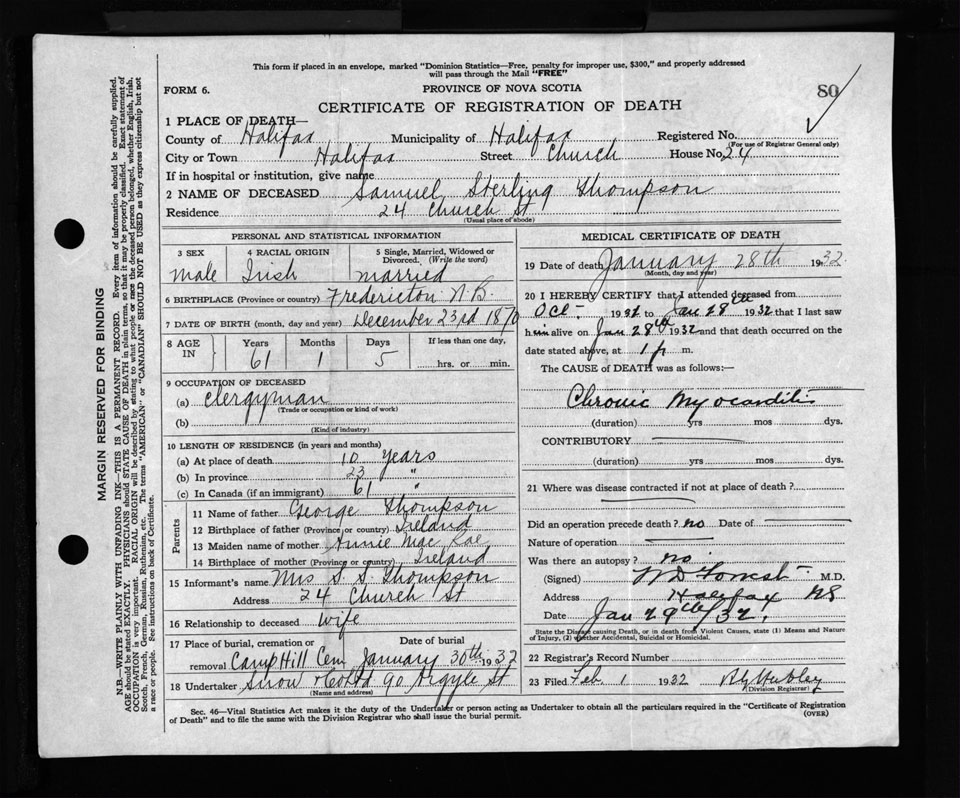 This form if placed in an envelope, marked "Dominion Statistics—Free, penalty for improper use, $300," and properly addressed
will pass through the Mail "FREE"
FORM 6.
PROVINCE OF NOVA SCOTIA
80
CERTIFICATE OF REGISTRATION OF DEATH
1 PLACE OF DEATH—
County of Halifax Municipality of Halifax Registered No.
(For use of Registrar General only)
City or Town Halifax Street Church House No. 24
If in hospital or institution, give name
2 NAME OF DECEASED Samuel Sterling Thompson
Residence 24 Church St
(Usual place of abode)
PERSONAL AND STATISTICAL INFORMATION
3 SEX 4 RACIAL ORIGIN 5 Single, Married, Widowed or Divorced. (Write the word)
male Irish married
6 BIRTHPLACE (Province or country) Fredericton N.B.
7 DATE OF BIRTH (month, day and year) December 23rd 1870
8 AGE IN Years Months Days If less than one day,
61 1 5 hrs. or min.
9 OCCUPATION OF DECEASED
(a) clergyman
(Trade or occupation or kind of work)
(b)
(Kind of industry)
10 LENGTH OF RESIDENCE (in years and months)
(a) At place of death 10 years
(b) In province 23 "
(c) In Canada (if an immigrant) 61 "
Parents
11 Name of father George Thompson
12 Birthplace of father (Province or country) Ireland
13 Maiden name of mother Annie Mac Rae
14 Birthplace of mother (Province or country) Ireland
15 Informant's name Mrs S. S. Thompson
Address 24 Church St
16 Relationship to deceased wife
17 Place of burial, cremation or removal Date of burial
Camp Hill Cem January 30th 1932
18 Undertaker Snow & Co Ltd 90 Argyle St
(Name and address)
MEDICAL CERTIFICATE OF DEATH
19 Date of death January 28th 1932
(Month, day and year)
20 I HEREBY CERTIFY that I attended deceased from
Oct- 1931 to Jan 28th 1932 that I last saw
him alive on Jan 28th 1932 and that death occurred on the
date stated above, at 1 p m.
The CAUSE of DEATH was as follows:—
Chronic Myocarditis
(duration) yrs mos dys.
CONTRIBUTORY
(duration) yrs mos dys.
21 Where was disease contracted if not at place of death?
Did an operation precede death? no Date of
Nature of operation
Was there an autopsy? no.
(Signed) W D Forrest M.D.
Address Halifax NS
Date Jan 29th/32.
State the Disease causing Death, or in death from Violent Causes, state (1) Means and Nature
of Injury, (2) whether Accidental, Suicidal or Homicidal.
22 Registrar's Record Number
23 Filed Feb. 1 1932
(Division Registrar)
Sec. 46—Vital Statistics Act makes it the duty of the Undertaker or person acting as Undertaker to obtain all the particulars required in the "Certificate of Registration
of Death" and to file the same with the Division Registrar who shall issue the burial permit.
(OVER)
MARGIN RESERVED FOR BINDING
N.B.—WRITE PLAINLY WITH UNFADING INK—THIS IS A PERMANENT RECORD. Every item of information should be carefully supplied.
AGE should be stated EXACTLY. PHYSICIANS should STATE CAUSE OF DEATH in plain terms, so that it may be properly classified. Exact statement of
OCCUPATION is very important. RACIAL ORIGIN will be described by stating to what people or race the deceased person belonged, whether English, Irish,
Scotch, French, German, Russian, Ruthenian, etc. The terms "AMERICAN" or "CANADIAN" SHOULD NOT BE USED as they express citizenship but not
a race or people. See instructions on back of Certificate.